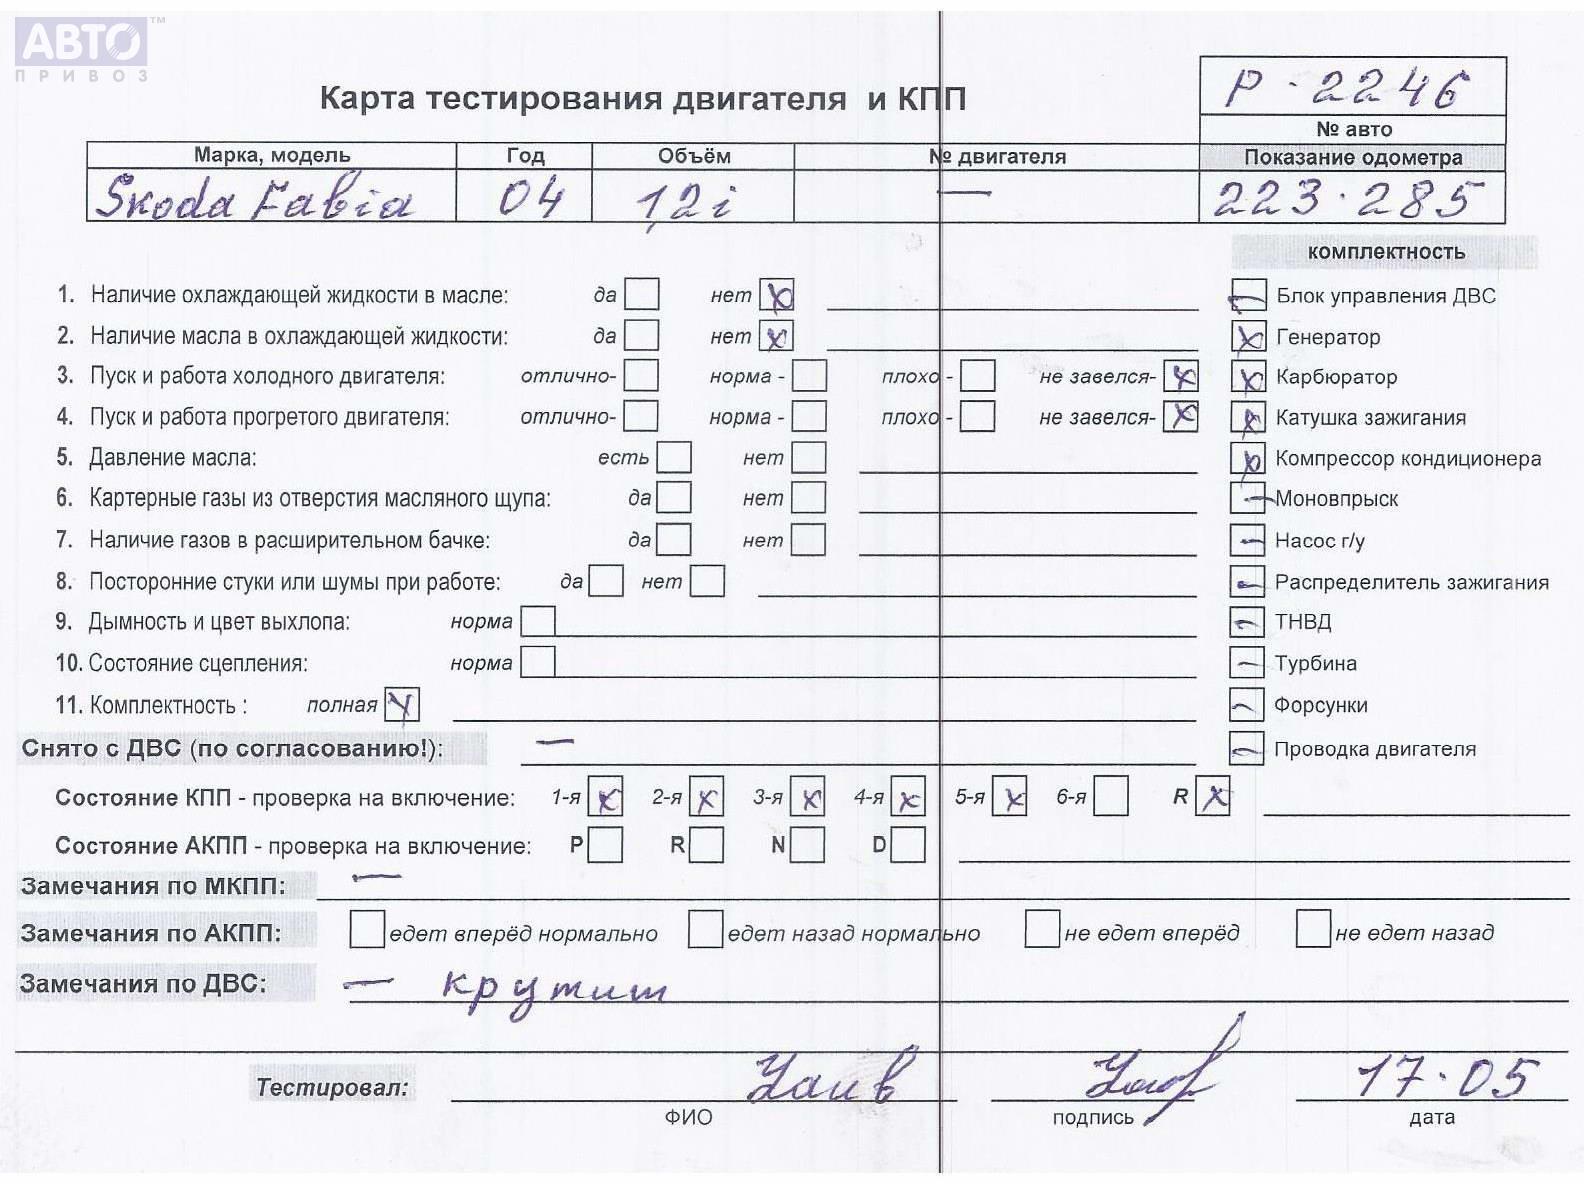 АВТО™
ПРИВОЗ
Карта тестирования двигателя и КПП
Р-2246
№ авто
Марка, модель Год Объём № двигателя Показание одометра
Skoda Fabia 04 1,2i — 223.285
комплектность
1. Наличие охлаждающей жидкости в масле: да нет x Блок управления ДВС
2. Наличие масла в охлаждающей жидкости: да нет x Генератор
3. Пуск и работа холодного двигателя: отлично- норма - плохо - не завелся- x Карбюратор
4. Пуск и работа прогретого двигателя: отлично- норма - плохо - не завелся- x Катушка зажигания
5. Давление масла: есть нет Компрессор кондиционера
6. Картерные газы из отверстия масляного щупа: да нет Моновпрыск
7. Наличие газов в расширительном бачке: да нет Насос г/у
8. Посторонние стуки или шумы при работе: да нет Распределитель зажигания
9. Дымность и цвет выхлопа: норма ТНВД
10. Состояние сцепления: норма Турбина
11. Комплектность : полная x Форсунки
Снято с ДВС (по согласованию!): — Проводка двигателя
Состояние КПП - проверка на включение: 1-я x 2-я x 3-я x 4-я x 5-я x 6-я R x
Состояние АКПП - проверка на включение: P R N D
Замечания по МКПП: —
Замечания по АКПП: едет вперёд нормально едет назад нормально не едет вперёд не едет назад
Замечания по ДВС: — крутит
Тестировал: 17.05
ФИО подпись дата